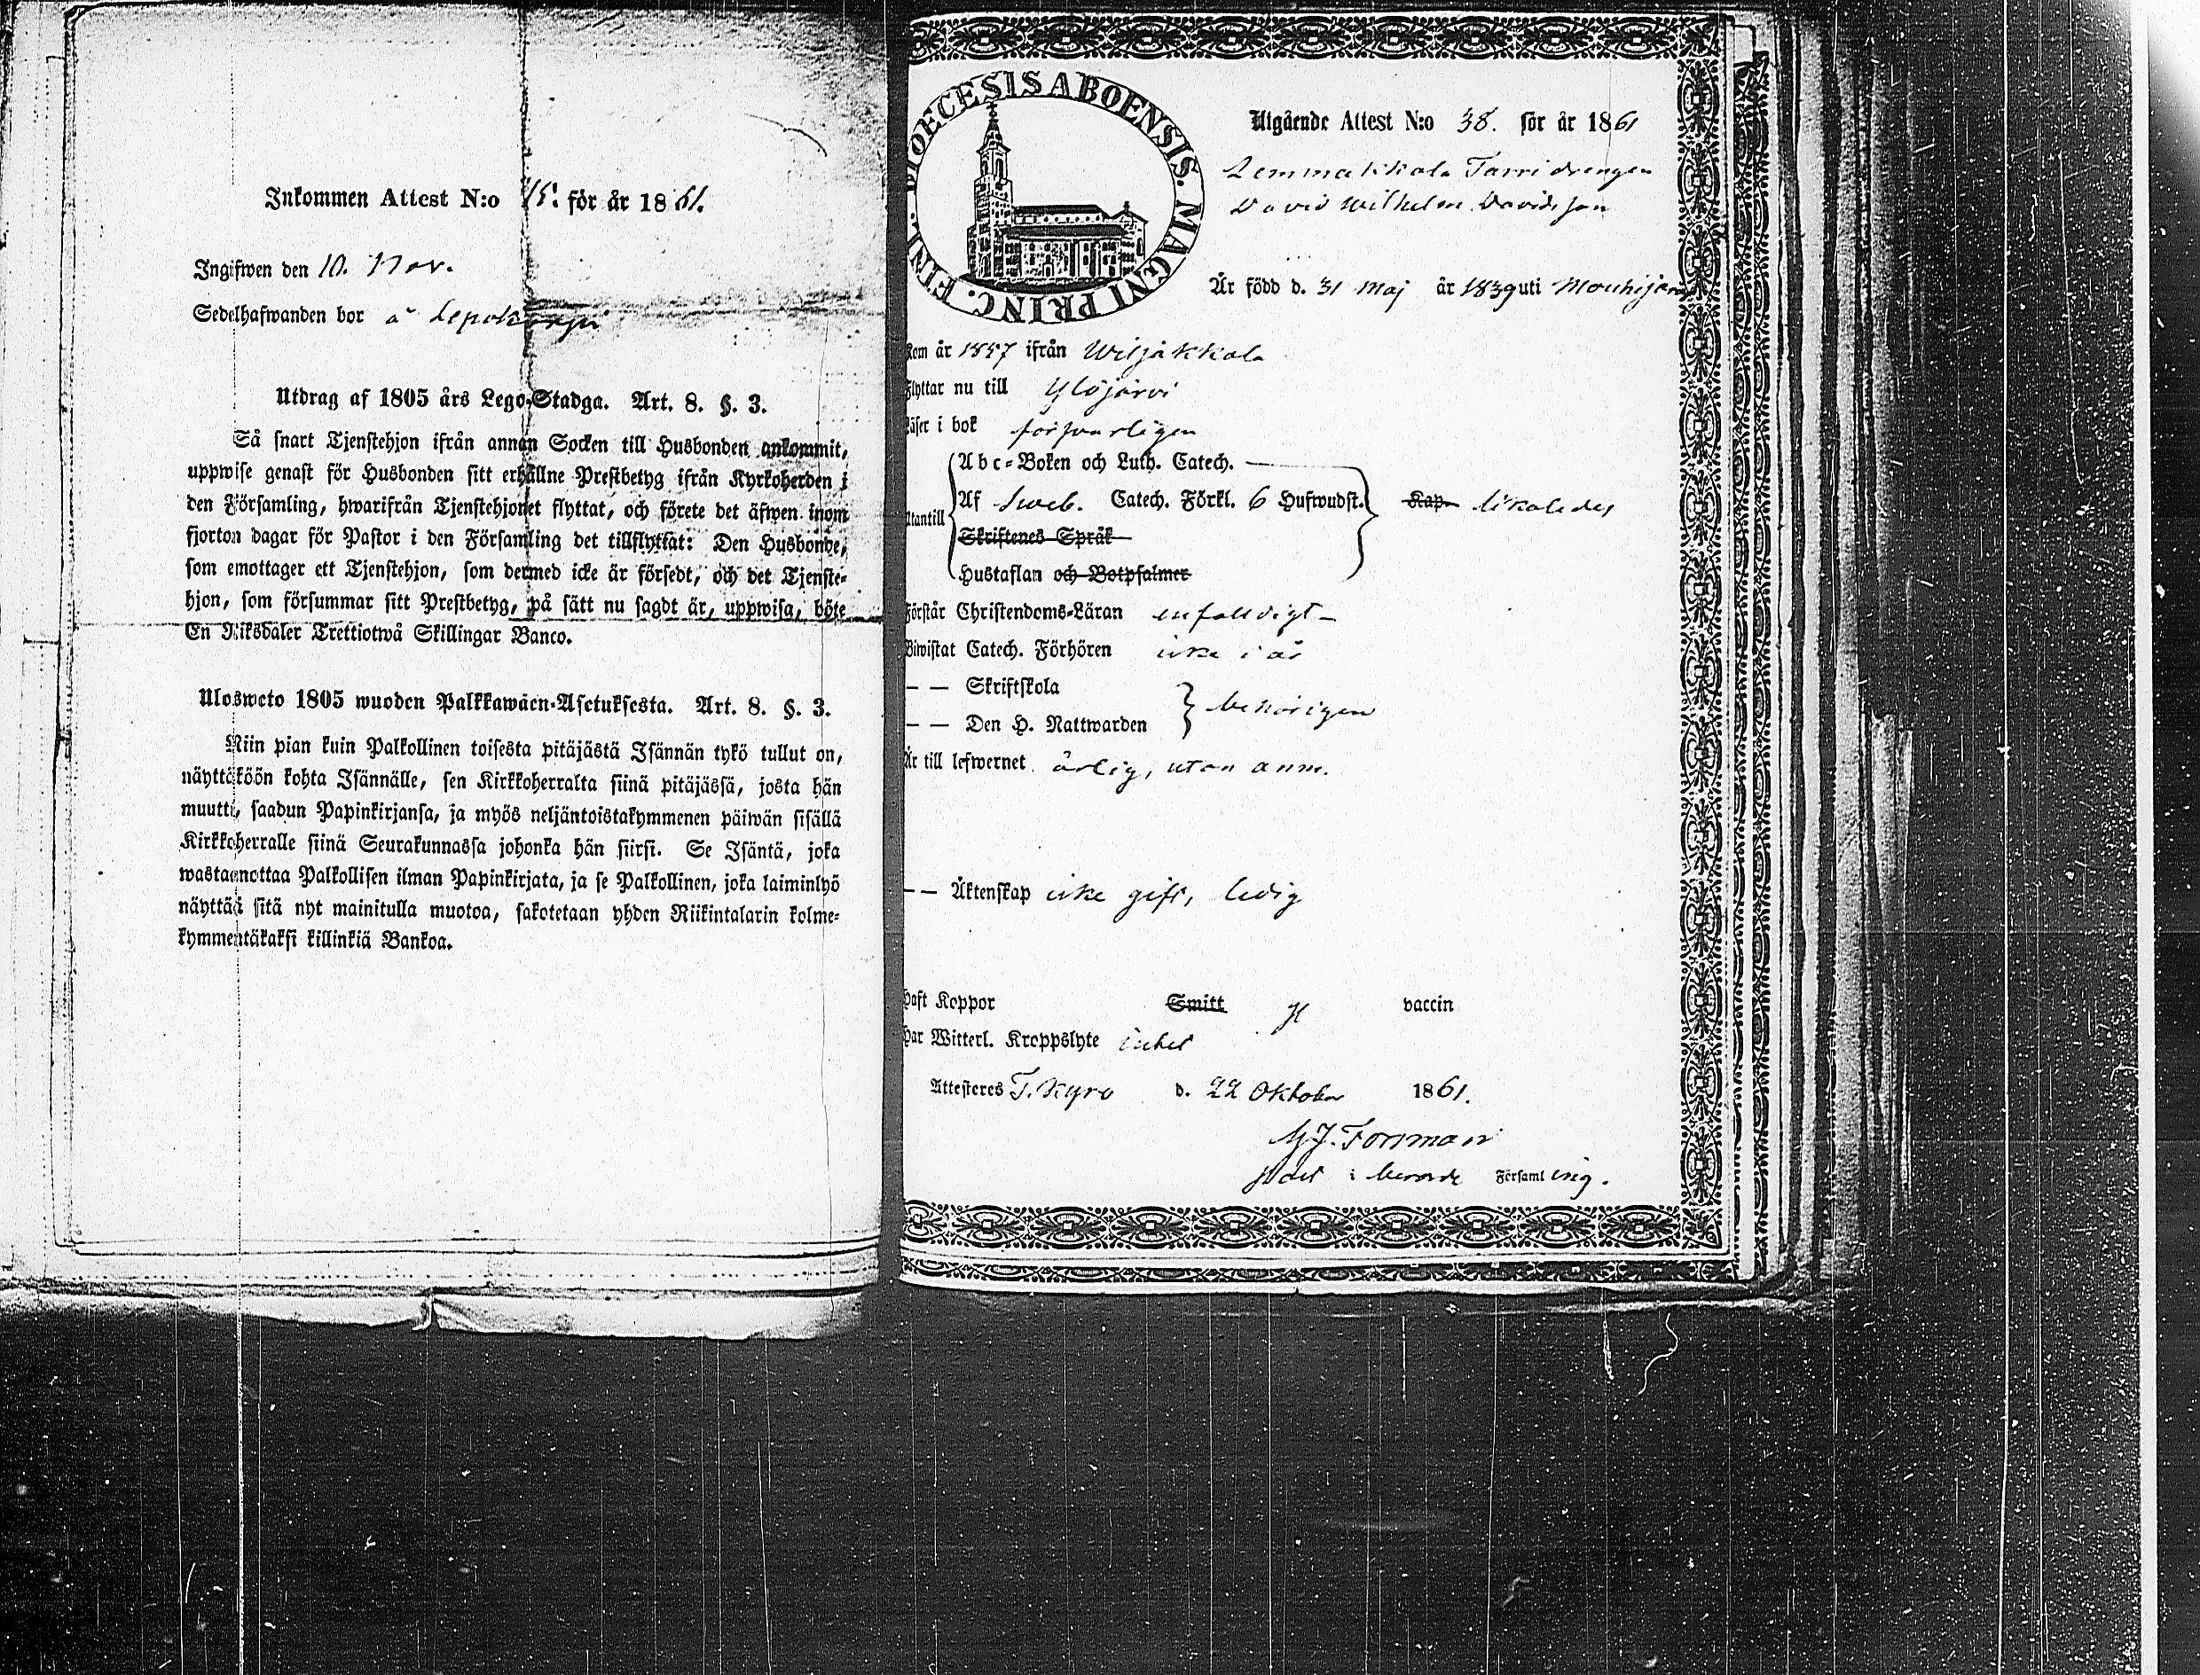 Inkommen Attest N:o 15. för år 1861.
Ingifwen den 10. Nov.
Sedelhafwanden bor å
Utdrag af 1805 års Lego-Stadga. Art. 8. §. 3.
Så snart Tjenstehjon ifrån annan Socken till Husbonden ankommit,
uppwise genast för Husbonden sitt erhållne Prestbetyg ifrån Kyrkoherden i
den Församling, hwarifrån Tjenstehjonet flyttat, och förete det äfwen inom
fjorton dagar för Pastor i den Församling det tillflyttat: Den Husbonde,
som emottager ett Tjenstehjon, som dermed icke är försedt, och det Tjenste-
hjon, som försummar sitt Prestbetyg, på sätt nu sagdt är, uppwisa, böte
En Riksdaler Trettiotwå Skillingar Banco.
Ulosweto 1805 wuoden Palkkawäen-Asetuksesta. Art. 8. §. 3.
Niin pian kuin Palkollinen toisesta pitäjästä Isännän tykö tullut on,
näyttäköön kohta Isännälle, sen Kirkkoherralta siinä pitäjässä, josta hän
muutti, saadun Papinkirjansa, ja myös neljäntoistakymmenen päiwän sisällä
Kirkkoherralle siinä Seurakunnassa johonka hän siirsi. Se Isäntä, joka
wastaanottaa Palkollisen ilman Papinkirjata, ja se Palkollinen, joka laiminlyö
näyttää sitä nyt mainitulla muotoa, sakotetaan yhden Riikintalarin kolme-
kymmentäkaksi killinkiä Bankoa.
DIOECESIS ABOENSIS. MAGNI PRINC. FINL.
Utgående Attest N:o 38. för år 1861
Lemmakkala Tarri drengen
David Wilhelm Davidsson
Är född d. 31 Maj år 1839 uti Mouhijärvi
Kom år 1857 ifrån Wiljakkala
Flyttar nu till Ylöjärvi
Läser i bok försvarligen
Abc-Boken och Luth. Catech.
Utantill
Af Sweb. Catech. Förkl. 6 Hufwudst. Kap. likaledes
Skriftenes Språk
Hustaflan och Botpsalmer
Förstår Christendoms-Läran enfaldigt
Biwistat Catech. Förhören icke i år
— — Skriftskola
behörigen
— — Den H. Nattwarden
Är till lefwernet ärlig, utan anm.
— — Äktenskap icke gift, ledig
Haft Koppor Smitt H vaccin
Har Witterl. Kroppslyte intet
Attesteres T. Kyro d. 22 Oktober 1861.
Forsman
i Församling.